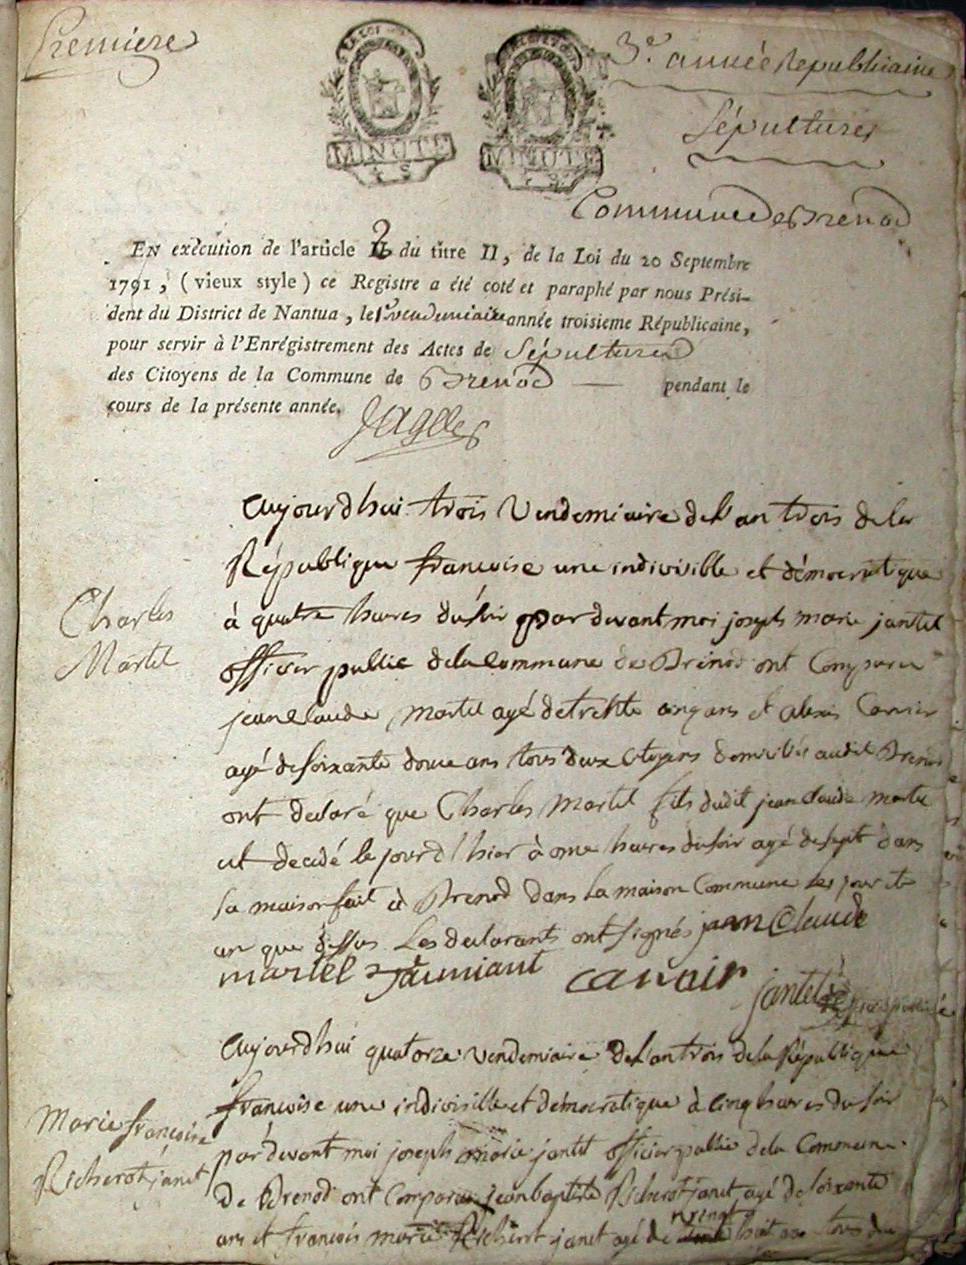 Premiere
LA LOI
MINUTE
MINUTE
3e année Republicaine
Sépultures
Commune de Brenod
EN exécution de l'article 2 du titre II, de la Loi du 20 Septembre
1791, (vieux style) ce Registre a été coté et paraphé par nous Prési-
dent du District de Nantua, le 1er vendemiaire année troisieme Républicaine,
pour servir à l'Enrégistrement des Actes de Sépultures
des Citoyens de la Commune de Brenod — pendant le
cours de la présente année.
aujourd'hui trois Vendemiaire de l'an trois de la
République francoise une indivisible et démocratique
à quatre heures du soir par devant moi joseph marie jantet
officier public de la Commune de Brenod ont Comparu
jean Claude Martel agé de trente cinq ans et alexis Carrier
agé de soixante douze ans tous deux Citoyens domiciliés audit Brenod
ont declaré que Charles Martel fils dudit jean claude martel
est decidé le jour d'hier à onze heures du soir agé de sept dans
sa maison fait à Brenod dans la maison Commune les jour et
an que dessus Les declarants ont signés jean Claude
martel
jantet officier public
Charles
Martel
aujourd'hui quatorze vendemiaire de l'an trois de la République
francoise une indivisible et démocratique à cinq heures du soir
par devant moi joseph marie jantet officier public de la Commune
De Brenod ont Comparu jean baptiste Richerot janet agé de soixante
ans et françois marie Richerot janet agé de huit ans tous deux
Marie françoise
Richerot janet